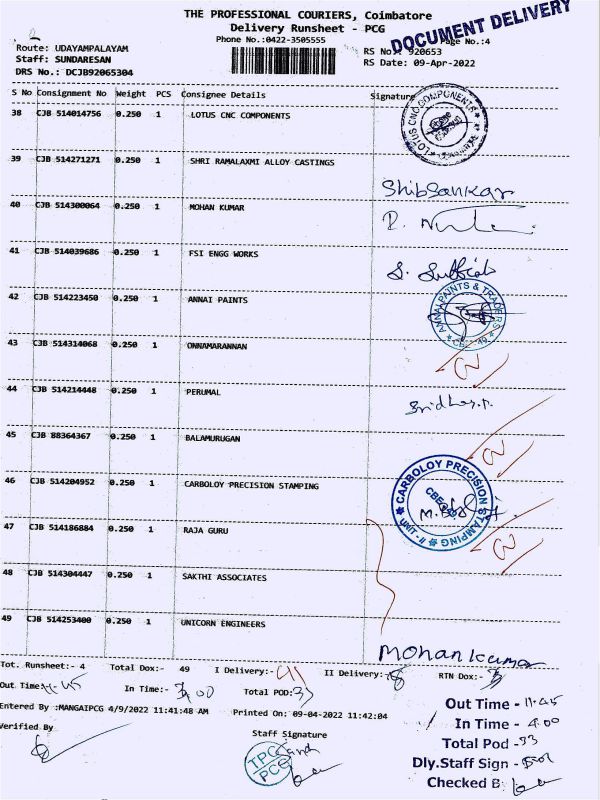 THE PROFESSIONAL COURIERS, Coimbatore
Delivery Runsheet - PCG
Phone No.:0422-3505555
DOCUMENT DELIVERY
Page No.:4
Route: UDAYAMPALAYAM
Staff: SUNDARESAN
DRS No.: DCJB92065304
RS No: 920653
RS Date: 09-Apr-2022
S No Consignment No Weight PCS Consignee Details Signature
38 CJB 514014756 0.250 1 LOTUS CNC COMPONENTS
LOTUS CNC COMPONENTS
39 CJB 514271271 0.250 1 SHRI RAMALAXMI ALLOY CASTINGS
Shibsankar
40 CJB 514300064 0.250 1 MOHAN KUMAR
41 CJB 514039686 0.250 1 FSI ENGG WORKS
42 CJB 514223450 0.250 1 ANNAI PAINTS
ANNAI PAINTS & TRADERS
43 CJB 514314068 0.250 1 ONNAMARANNAN
44 CJB 514214448 0.250 1 PERUMAL
Sridhar.P.
45 CJB 88364367 0.250 1 BALAMURUGAN
46 CJB 514204952 0.250 1 CARBOLOY PRECISION STAMPING
CARBOLOY PRECISION STAMPING
UNIT - II
47 CJB 514186884 0.250 1 RAJA GURU
48 CJB 514304447 0.250 1 SAKTHI ASSOCIATES
49 CJB 514253400 0.250 1 UNICORN ENGINEERS
Mohankumar
Tot. Runsheet:- 4 Total Dox:- 49 I Delivery:- II Delivery:- 8 RTN Dox:-
Out Time:- 11.45 In Time:- Total POD:- 33
Entered By :MANGAIPCG 4/9/2022 11:41:48 AM Printed On: 09-04-2022 11:42:04
Verified By
Staff Signature
TPC
PCG
Out Time - 11.45
In Time - 4.00
Total Pod - 33
Dly.Staff Sign -
Checked B